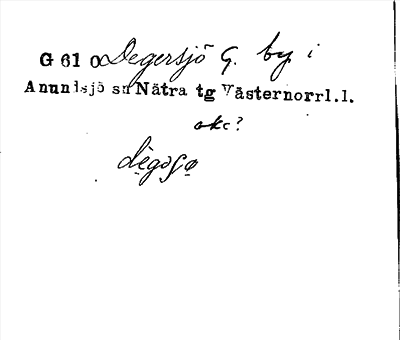 G 61 o Degersjö G. by i
Anundsjö sn Nätra tg Västernorrl.l.
akc?
dègəʃø